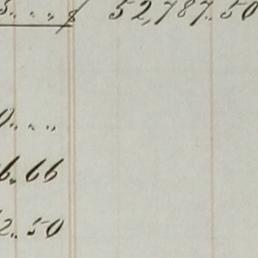 5. „ „ $ 52,787.50
0. „ „
6.66
2.50